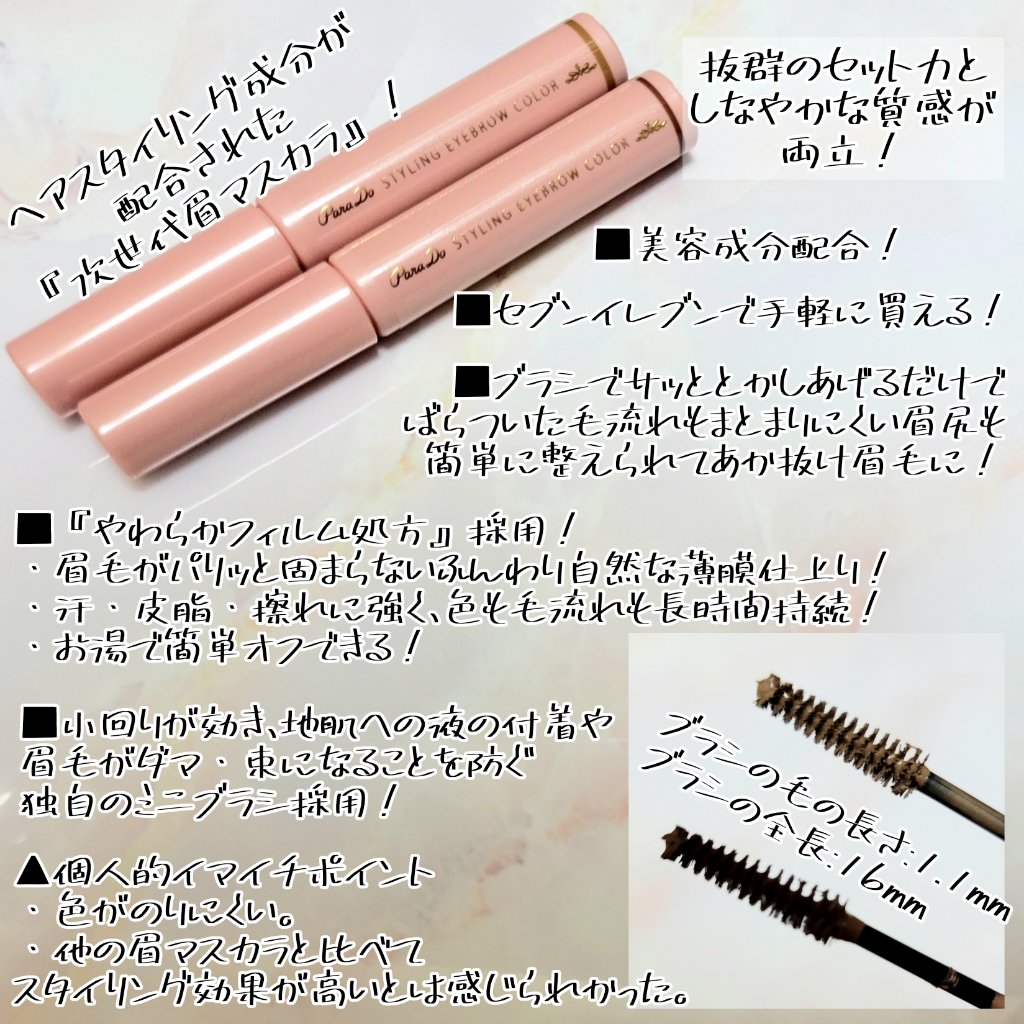 ヘアスタイリング成分が
配合された
『次世代眉マスカラ』！
ParaDo STYLING EYEBROW COLOR
ParaDo STYLING EYEBROW COLOR
抜群のセット力と
しなやかな質感が
両立！
■美容成分配合！
■セブンイレブンで手軽に買える！
■ブラシでサッととかしあげるだけで
ばらついた毛流れもまとまりにくい眉尻も
簡単に整えられてあか抜け眉毛に！
■『やわらかフィルム処方』採用！
・眉毛がパリッと固まらないふんわり自然な薄膜仕上り！
・汗・皮脂・擦れに強く、色も毛流れも長時間持続！
・お湯で簡単オフできる！
■小回りが効き、地肌への液の付着や
眉毛がダマ・束になることを防ぐ
独自のミニブラシ採用！
ブラシの毛の長さ:1.1mm
ブラシの全長:16mm
▲個人的イマイチポイント
・色がのりにくい。
・他の眉マスカラと比べて
スタイリング効果が高いとは感じられかった。